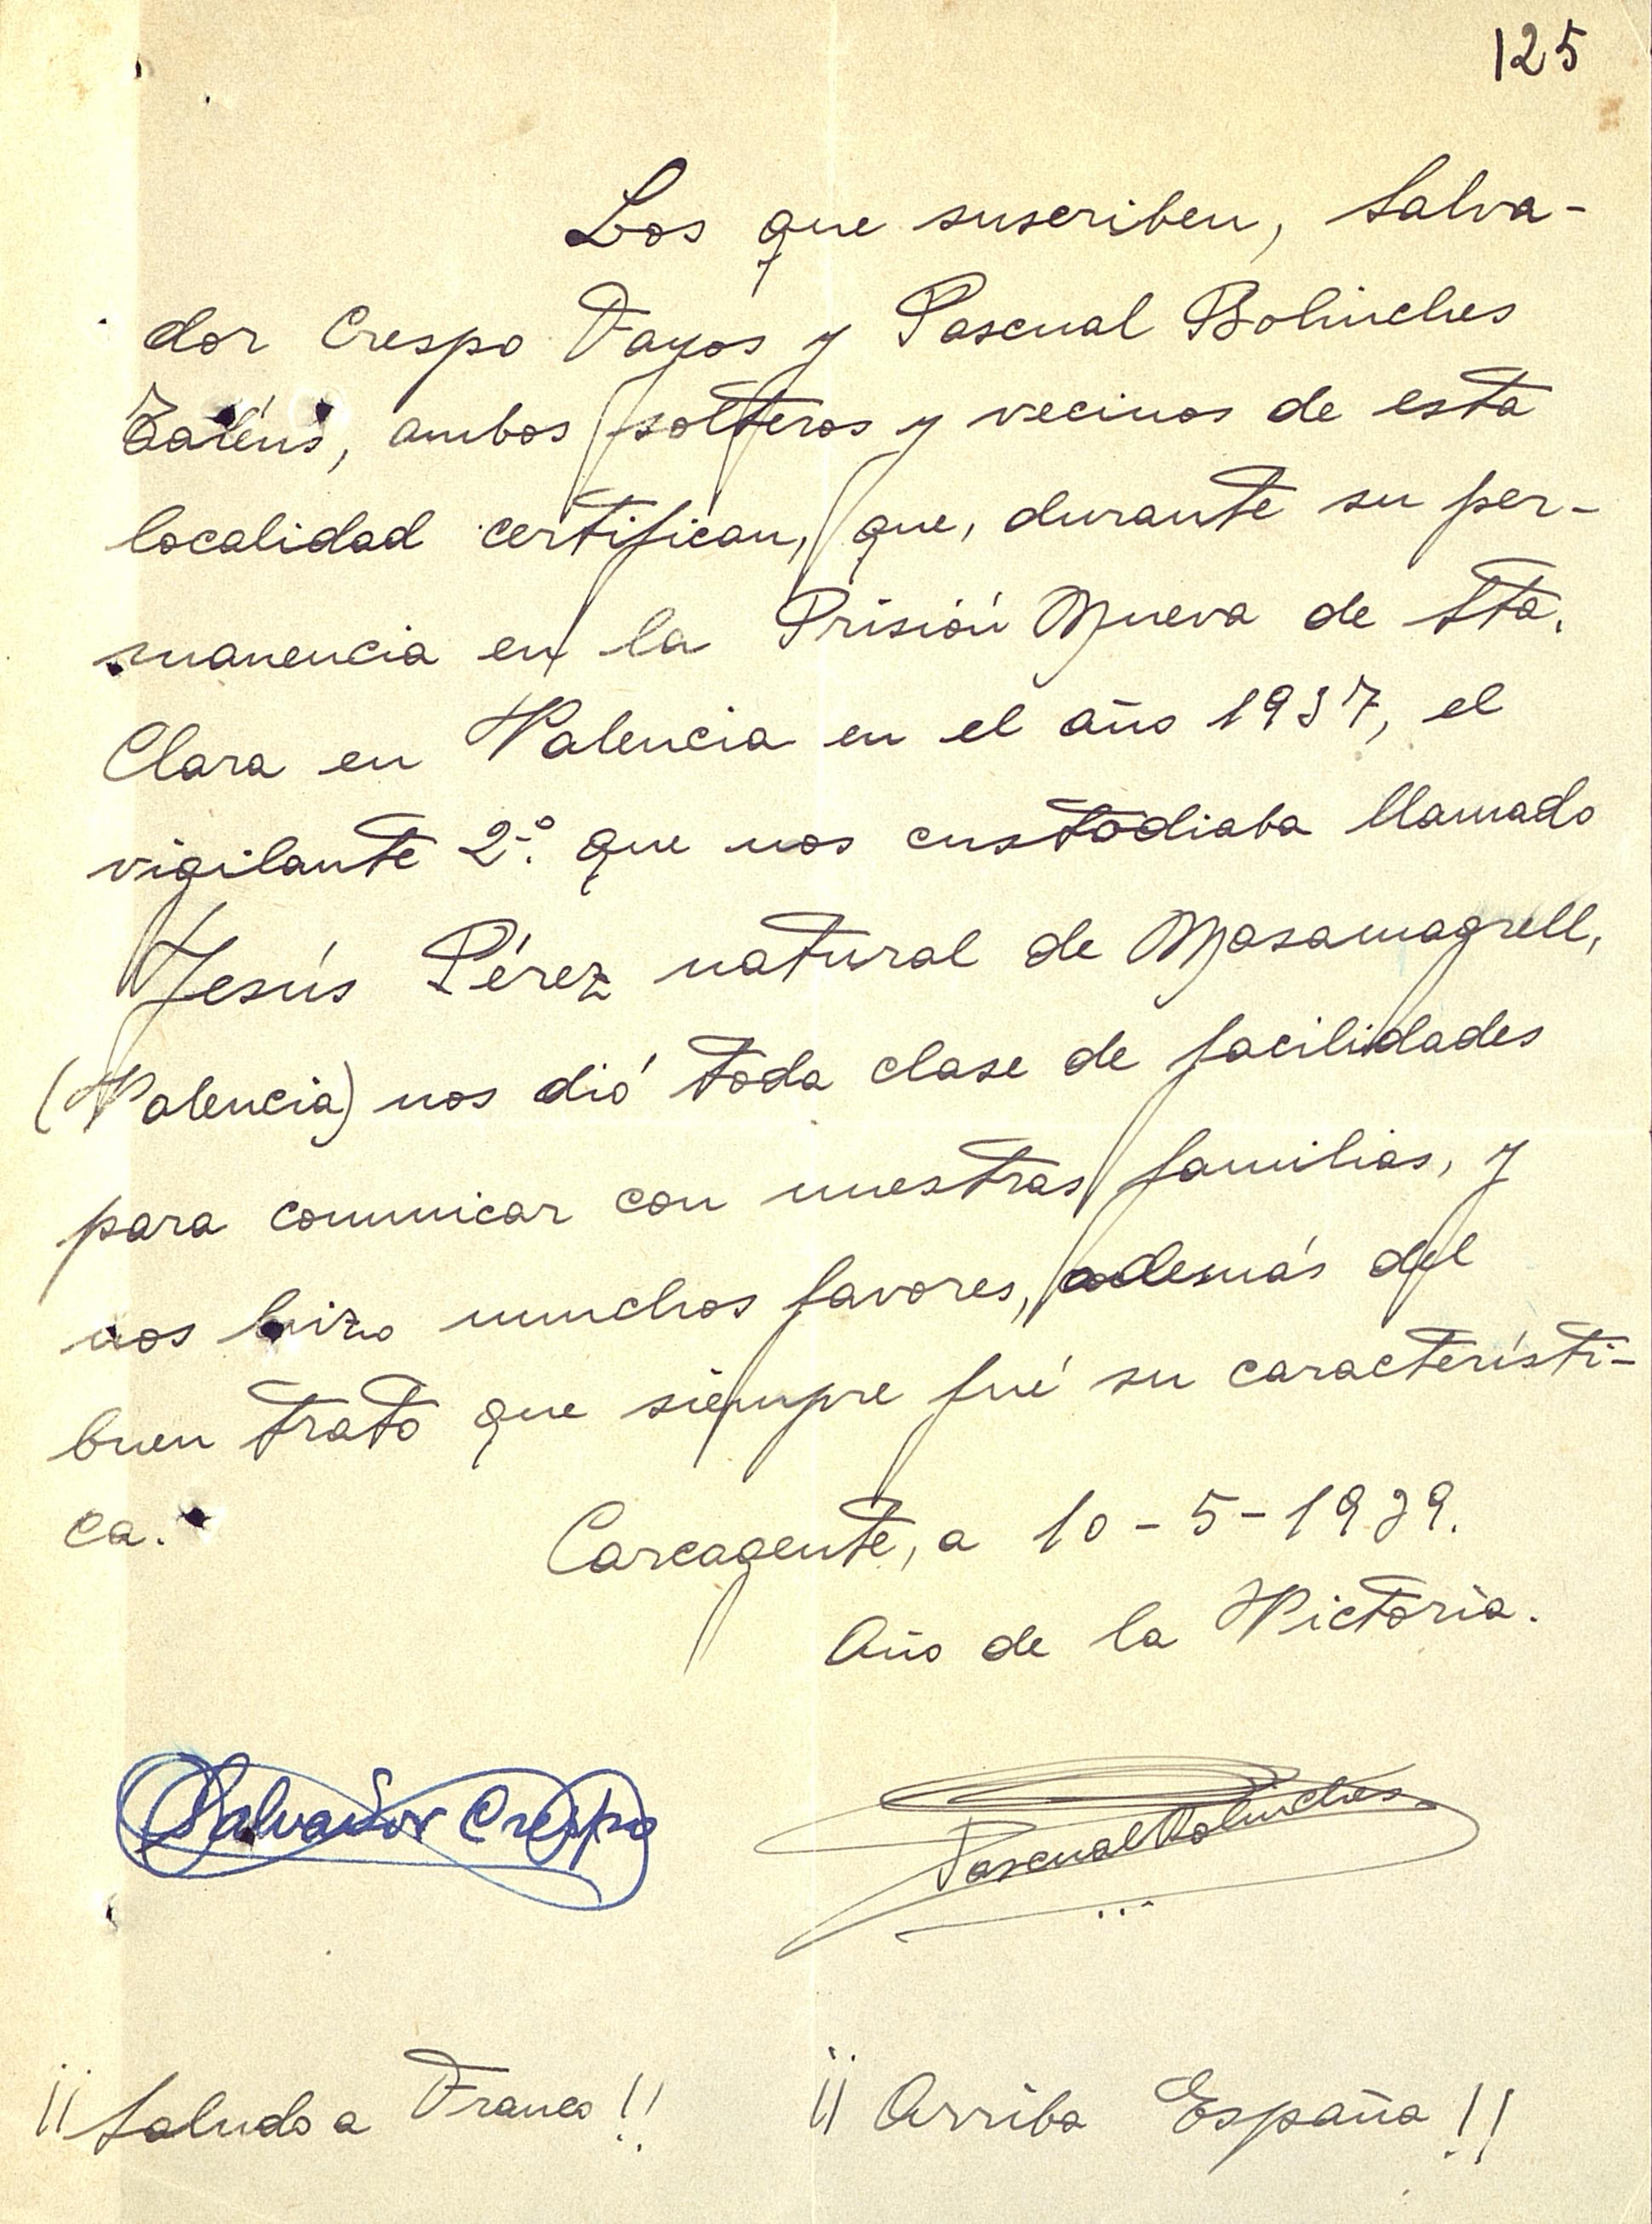 125
Los que suscriben, Salva-
dor Crespo Fayos y Pascual Bolinches
ambos solteros y vecinos de esta
localidad certifican, que, durante su per-
manencia en la Prisión Nueva de Sta.
Clara en Valencia en el año 1937, el
vigilante 2º. que nos custodiaba llamado
Jesús Pérez natural de Masamagrell,
(Valencia) nos dió toda clase de facilidades
para comunicar con nuestras familias, y
nos hizo muchos favores, además del
buen trato que siempre fué su característi-
ca.
Carcagente, a 10-5-1939.
Año de la Victoria.
Salvador Crespo
Pascual Bolinches
¡¡Saludo a Franco!!
¡¡Arriba España!!